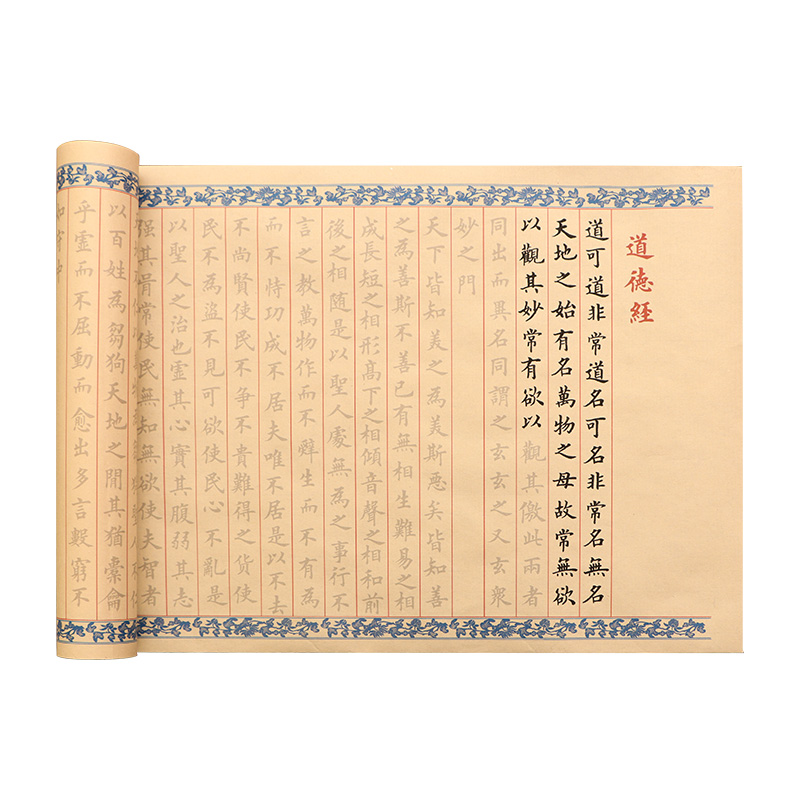 道德經
道可道非常道名可名非常名無名
天地之始有名萬物之母故常無欲
以觀其妙常有欲以觀其徼此兩者
同出而異名同謂之玄玄之又玄眾
妙之門
天下皆知美之為美斯惡矣皆知善
之為善斯不善已有無相生難易之相
成長短之相形高下之相傾音聲之相和前
後之相隨是以聖人處無為之事行不
言之教萬物作而不辭生而不有為
而不恃功成不居夫唯不居是以不去
不尚賢使民不爭不貴難得之貨使
民不為盜不見可欲使民心不亂是
以聖人之治也虛其心實其腹弱其志
强其骨常使民無知無欲使夫智者
以百姓為芻狗天地之間其猶橐龠
乎虛而不屈動而愈出多言數窮不